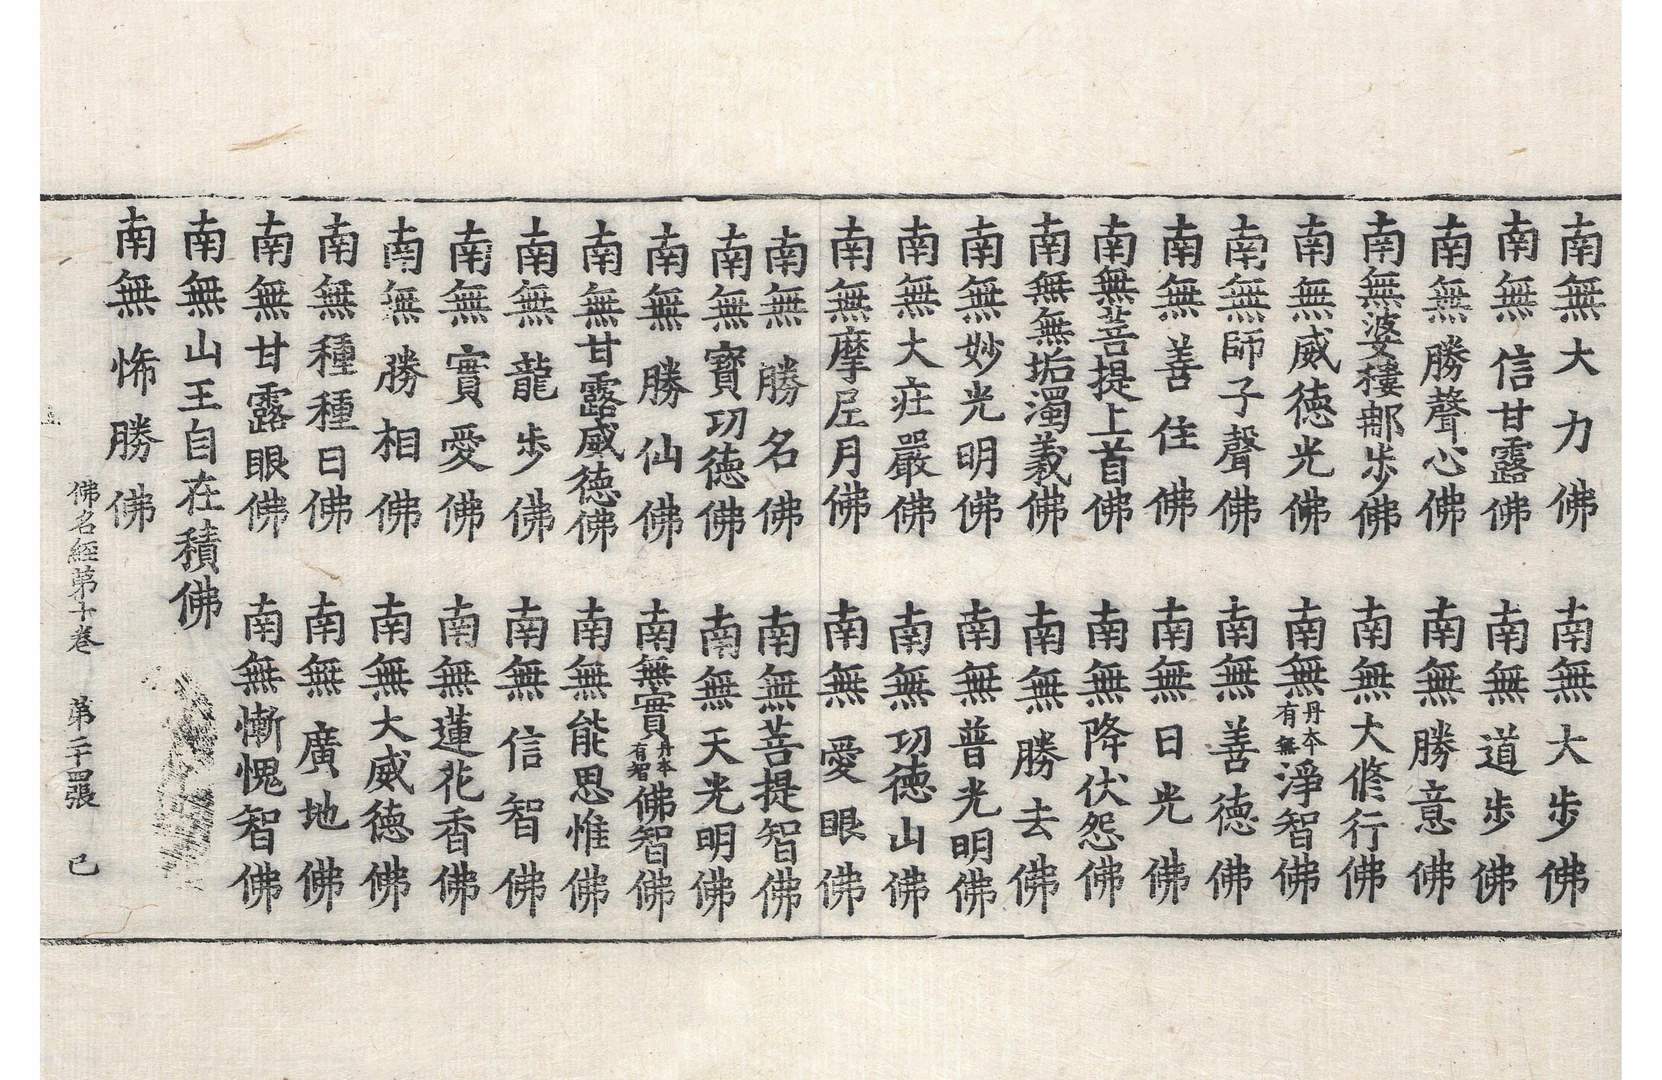 南無大力佛 南無大步佛
南無信甘露佛 南無道步佛
南無勝聲心佛 南無勝意佛
南無婆樓那步佛 南無大修行佛
南無威德光佛 南無丹本有無淨智佛
南無師子聲佛 南無善德佛
南無善住佛 南無日光佛
南無菩提上首佛 南無降伏怨佛
南無無垢濁義佛 南無勝去佛
南無妙光明佛 南無普光明佛
南無大莊嚴佛 南無功德山佛
南無摩尼月佛 南無愛眼佛
南無勝名佛 南無菩提智佛
南無寶功德佛 南無天光明佛
南無勝仙佛 南無實丹本有智佛智佛
南無甘露威德佛 南無能思惟佛
南無龍步佛 南無信智佛
南無實愛佛 南無蓮花香佛
南無勝相佛 南無大威德佛
南無種種日佛 南無廣地佛
南無甘露眼佛 南無慚愧智佛
南無山王自在積佛
南無怖勝佛
佛名経第十卷 第二十四張 己